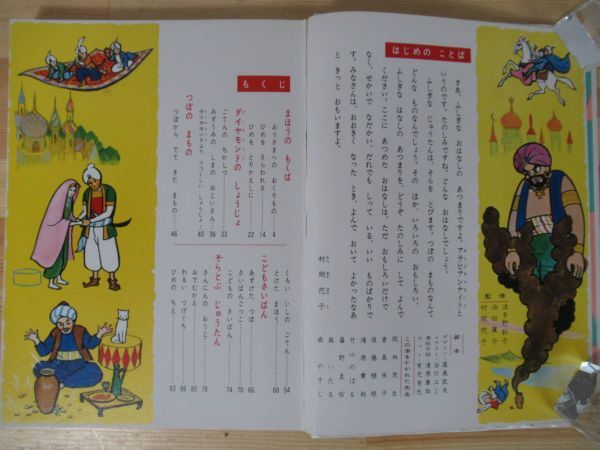 はじめの ことば
さあ、ふしぎな おはなしの あつまりですよ。アラビアン＝ナイトと
いうのです。たのしみですね。どんな おはなしでしょう。
ふしぎな じゅうたんは、そらを とびます。つぼの まものなんて
どんな ものなんでしょう。その ほか、いろいろの おもしろい、
ふしぎな はなしの あつまりを、どうぞ たのしみに して、よんで
ください。ここに あつめた おはなしは、ただ おもしろいだけで
なく、せかいで なだかい、だれでも しって いる、いい ものばかりで
す。みなさんは、おおきく なった とき、よんで おいて よかったなあ
と きっと おもいますよ。
村岡花子
監修
波多野勤子
浜田廣介
村岡花子
装本
この本をかかれた先生
岡林茂生
後藤楢根
滝原章助
竹山のぼる
森いたる
森やすじ
もくじ
まほうの もくば
おうさまへの おくりもの 4
ひめを さらわれる 14
ひめを とりかえしに 22
ダイヤモンドの しょうじょ
ごてんの ちかしつ 33
みずうみの しまの おじいさん 36
ダイヤモンドより うつくしい しょうじょ 40
つぼの まもの
つぼから でて きた まもの 46
くろい いしの ごてん 54
とけた まほう 60
こどもさいばん
あずけた つぼ 66
さいばんごっこ 70
こどもの さいばん 74
そらとぶ じゅうたん
さんにんの おうじ 76
おでむかえ 80
わるい つげぐち 86
ひめの ちえ 92